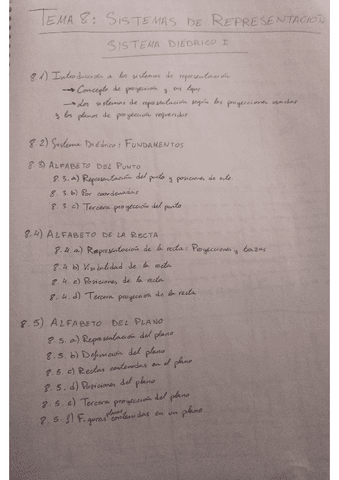 TEMA 8: SISTEMAS DE REPRESENTACIÓN
SISTEMA DIÉDRICO I
8.1) Introducción a los sistemas de representación
→ Concepto de proyección y sus tipos
→ Los sistemas de representación según las proyecciones usadas
y los planos de proyección requeridos
8.2) Sistema Diédrico: FUNDAMENTOS
8.3) ALFABETO DEL PUNTO
8.3.a) Representación del punto y posiciones de este
8.3.b) Por coordenadas
8.3.c) Tercera proyección del punto
8.4) ALFABETO DE LA RECTA
8.4.a) Representación de la recta: Proyecciones y trazas
8.4.b) Visibilidad de la recta
8.4.c) Posiciones de la recta
8.4.d) Tercera proyección de la recta
8.5) ALFABETO DEL PLANO
8.5.a) Representación del plano
8.5.b) Definición del plano
8.5.c) Rectas contenidas en el plano
8.5.d) Posiciones del plano
8.5.e) Tercera proyección del plano
8.5.f) Figuras planas contenidas en un plano